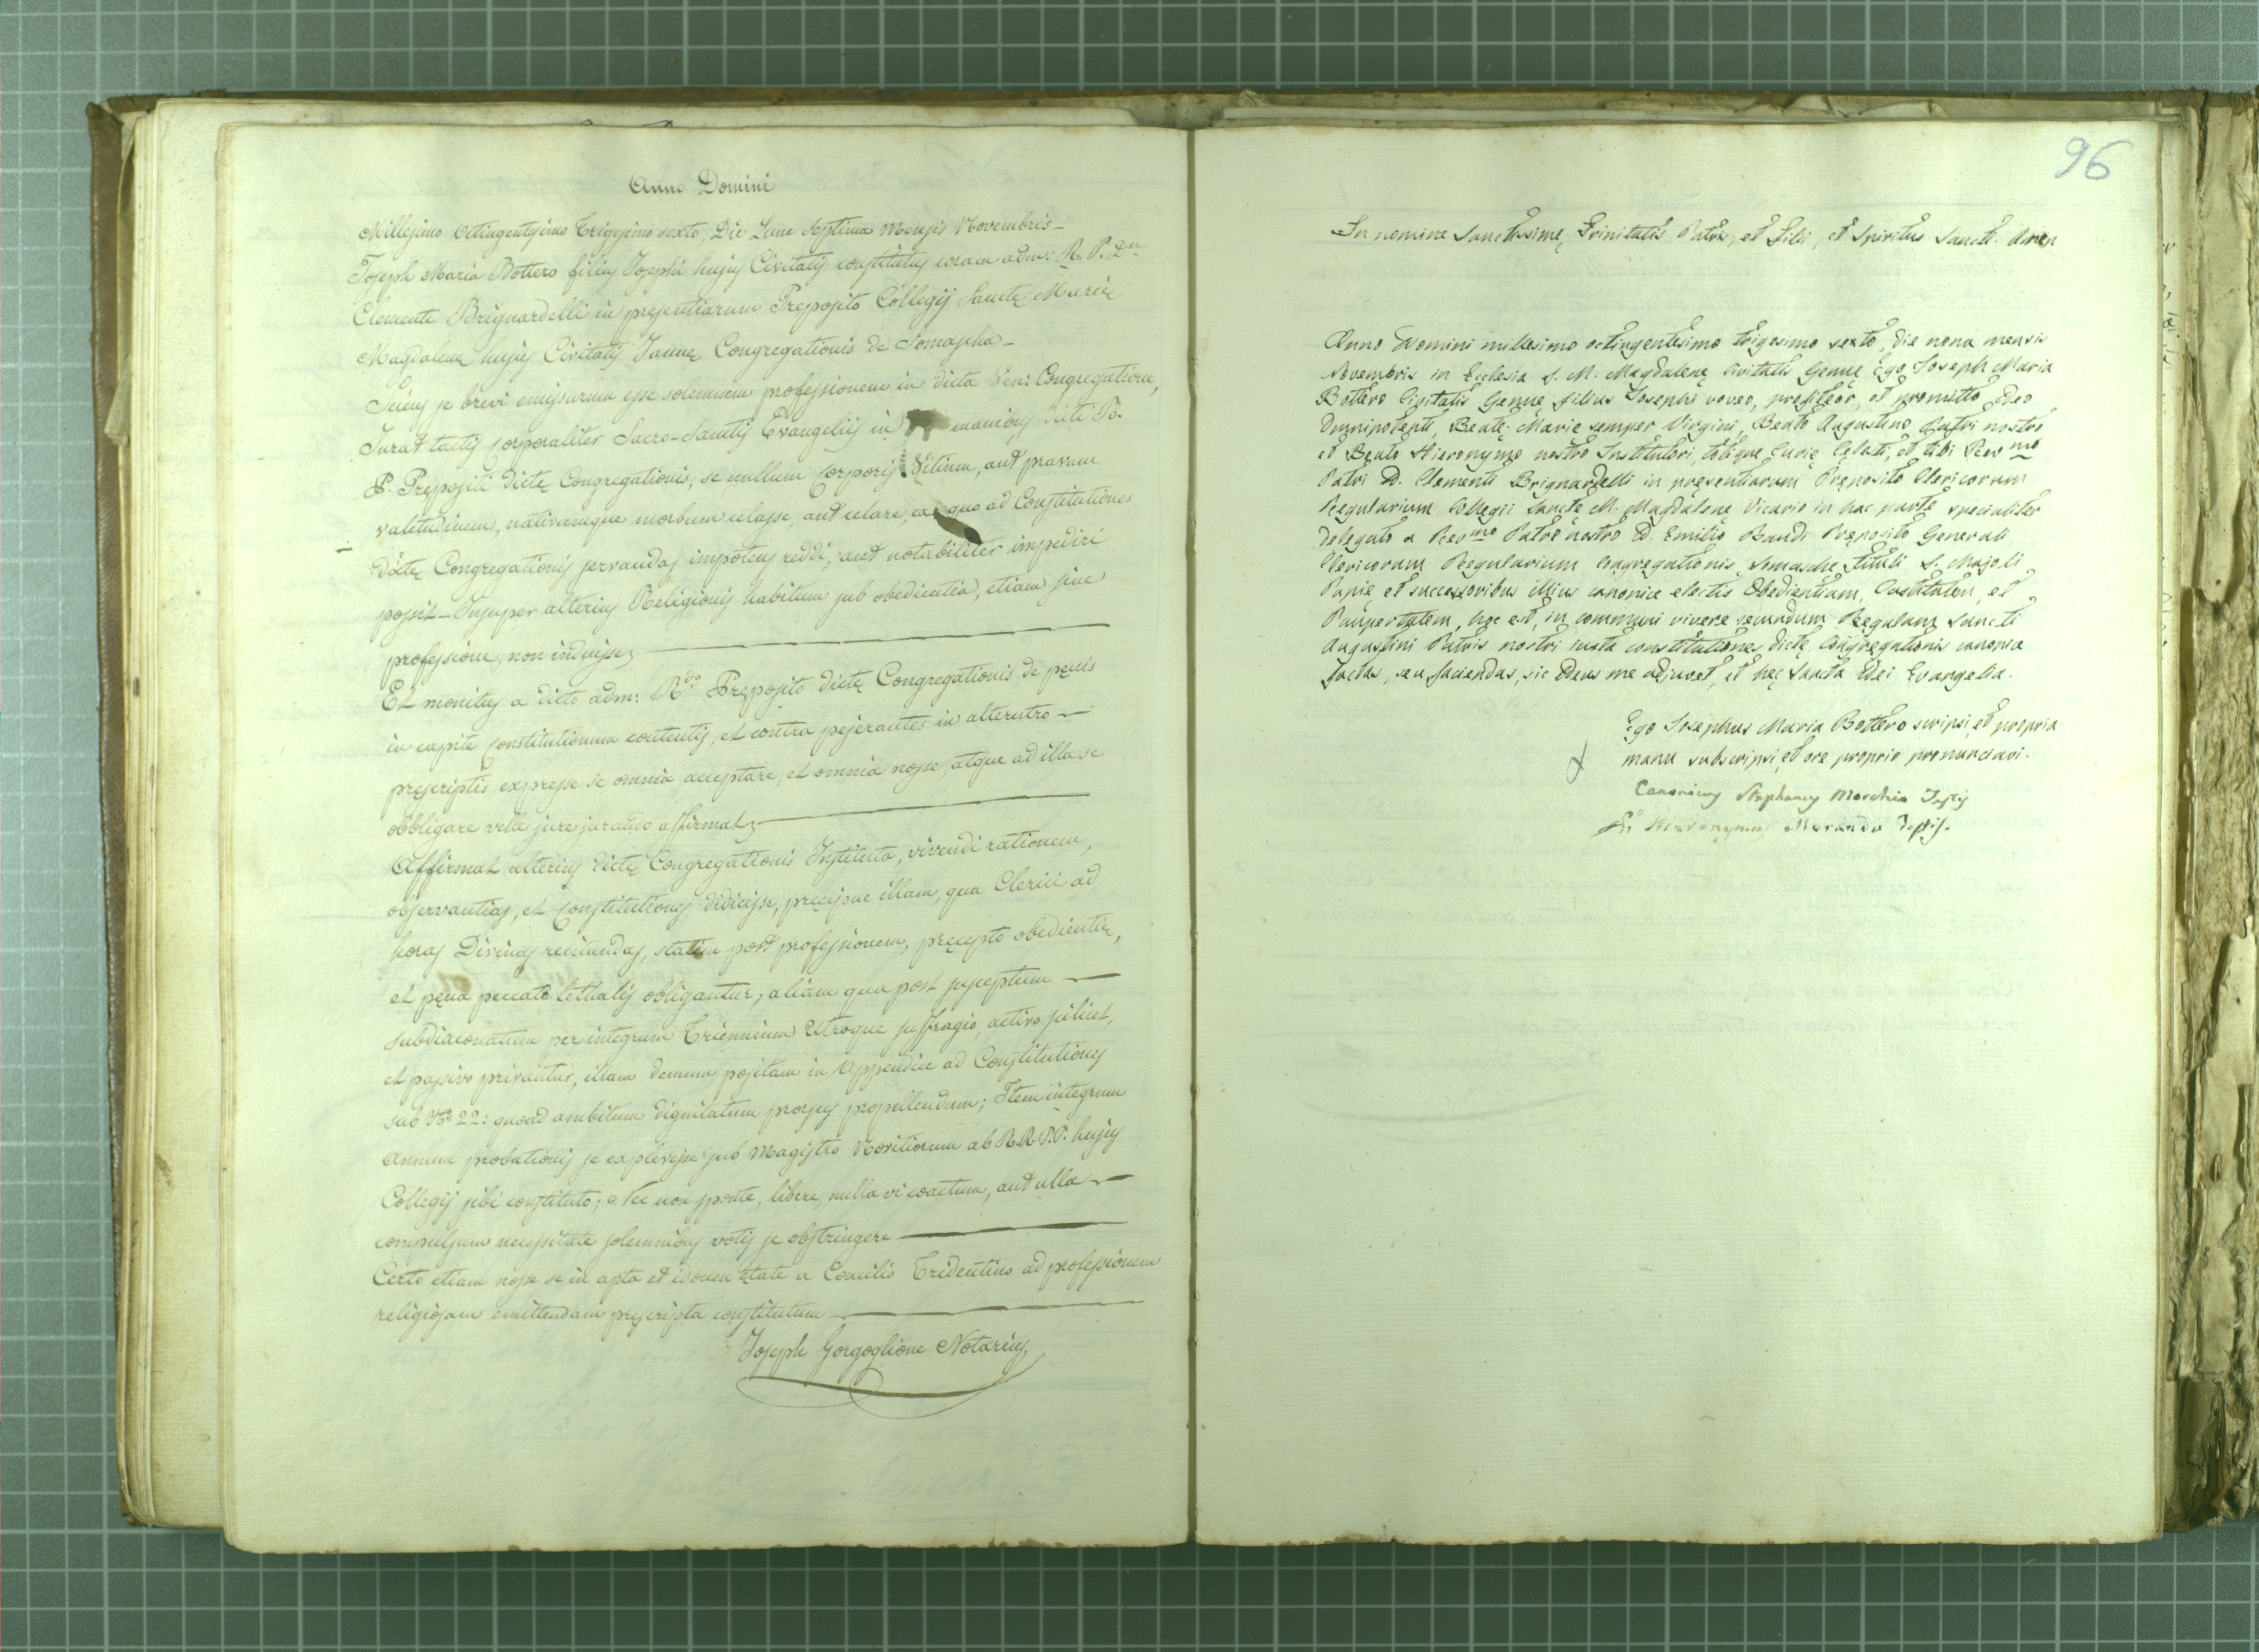 Anno Domini
Millesimo Octingentesimo Trigesimo sexto, Die Lunę Septima Mensis Novembris_
Joseph Maria Bottero filius Josephi hujus Civitatis constitutus coram adm: R. P. Dn
Clemente Brignardelli in presentiarum Preposito Collegij Sanctę Marię
Magdalenę hujus Civitatis Januę Congregationis de Somascha_
Sciens se brevi emissurum esse solemnem professionem in dicta Ven: Congregatione,
Jurat tactis corporaliter Sacro-Sanctis Evangelijs in manibus dicti P.
P. Prępositi dictę Congregationis, se nullum corporis Vitium, aut pravam
valetudinem, nativumque morbum celasse, aut celare, ex quo ad Constitutiones
dictę Congregationis servandas impotens reddi, aut notabiliter impediri
possit_Insuper alterius Religionis habitum sub obedientia, etiam sine
professione, non induisse;
Et monitus a dicto adm: Rdo Pręposito dictę Congregationis de pęnis
in capite Constitutionum contentis, et contra pejerantes in alterutro
pręscriptis expresse se omnia acceptare, et omnia nosse, atque ad illa se
obbligare velle jure jurando affirmat;
Affirmat ulterius dictę Congregationis Instituta, vivendi rationem,
observantias, et Constitutiones didicisse, pręcisue illam, qua Clerici ad
horas Divinas recitandas, statim post professionem, pręcepto obedientię,
et pęna peccato lethalis obligantur; aliam qua post susceptum
subdiaconatum per integrum Triennium utroque suffragio, activo scilicet,
et passivo privantur, illam demum positam in Appendice ad Constitutiones
sub No 22: quoad ambitum dignitatum prorsus propellendum; Item integrum
annum probationis se explevisse sub Magistro Novitiorum ab R.R.P.P. hujus
Collegij sibi constituto; Nec non sponte, libere, nulla vi coactum, aut ulla
compulsum necessitate solemnibus votis se obstringere
Certo etiam nosse se in apta et idonea ętate a Concilio Tridentino ad professionem
religiosam emittendam pręscripta constitutum
Joseph Gorgoglione Notarius
96
In nomine Sanctissimę Trinitatis Patris, et Filii, et Spiritus Sancti. Amen
Anno Domini millesimo octingentesimo trigesimo sexto, die nona mensis
Novembris in Ecclesia S. M. Magdalenę Civitatis Genuę Ego Joseph Maria
Bottero Civitatis Genuę filius Josephi voveo, profiteor, et promitto Deo
Omnipotenti, Beatę Marię semper Virgini, Beato Augustino Patri nostro
et Beato Hieronymo nostro Institutori, totique Curię Cęlesti, et tibi Revmo
Patri D. Clementi Brignardelli in pręsentiarum Pręposito Clericorum
Regularium Collegii Sanctę M. Magdalenę Vicario in hac parte specialiter
delegato a Revmo Patre nostro D. Emilio Baudi Pręposito Generali
Clericorum Regularium Congregationis Somasche Tituli S. Majoli
Papię et successoribus illius canonice electis Obedientiam, Castitatem, et
Paupertatem, hoc est, in communi vivere secundum Regulam Sancti
Augustini Patris nostri iuxta constitutione dictę Congregationis canonice
factas, seu faciendas, sic Deus me adjuvet, et hęc Sancta Dei Evangelia.
Ego Josephus Maria Bottero scripsi, et propria
manu subscripsi, et ore proprio pronunciavi.
Canonicus Stephanus Marchio Testis
Hieronymus Morando Testis.